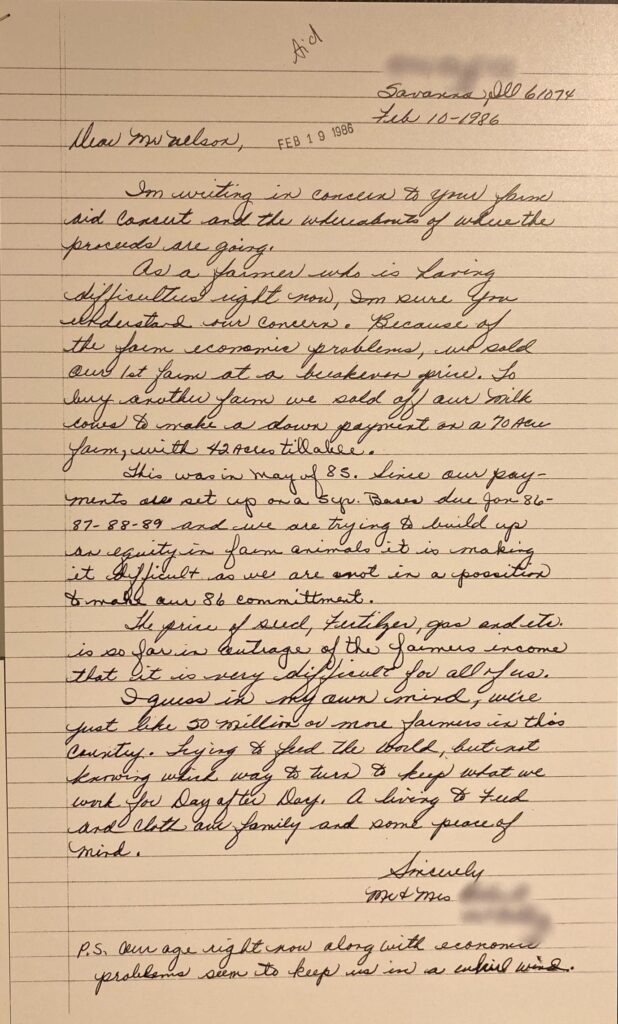 Aid
Savanna, Ill 61074
Feb 10-1986
Dear Mr Nelson,
FEB 19 1986
Im writing in concern to your farm
aid concert and the whereabouts of where the
proceeds are going.
As a farmer who is having
difficulties right now, Im sure you
understand our concern. Because of
the farm economic problems, we sold
our 1st farm at a breakeven price. To
buy another farm we sold off our milk
cows to make a down payment on a 70 Acre
farm, with 42 Acres tillable.
This was in May of 85. Since our pay-
ments are set up on a 5yr. Bases due Jan 86-
87-88-89 and we are trying to build up
an equity in farm animals it is making
it difficult as we are not in a possition
to make our 86 committment.
The price of seed, Fertilzer, gas and etc.
is so far in outrage of the farmers income
that it is very difficult for all of us.
I guess in my own mind, we're
just like 50 million or more farmers in this
country. Trying to feed the world, but not
knowing which way to turn to keep what we
work for Day after Day. A living to Feed
and Cloth our family and some peace of
mind.
Sincerely
Mr & Mrs
P.S. Our age right now along with economic
problems seem to keep us in a whirl wind.